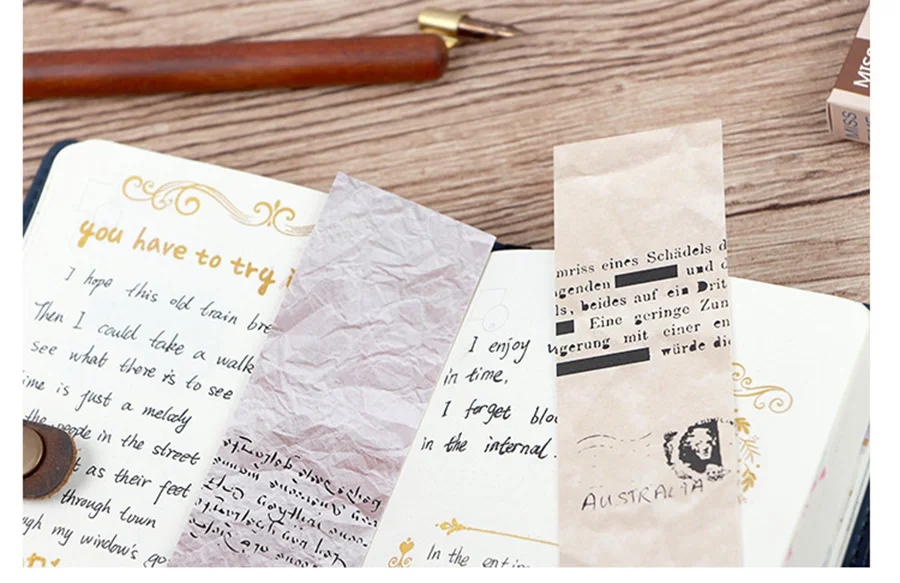 you have to try i
I hope this old train bre
Then I could take a walk
see what there is to see
ime is just a melody
the people in the street
t as their feet
through town
gh my window's go
I enjoy
in time,
I forget blo
in the internal.
In the entir
mriss eines Schädels d
genden und d
ls, beides auf ein Drit
Eine geringe Zun
ngerung mit einer en
würde die
AUSTRALIA
MISS
MISS